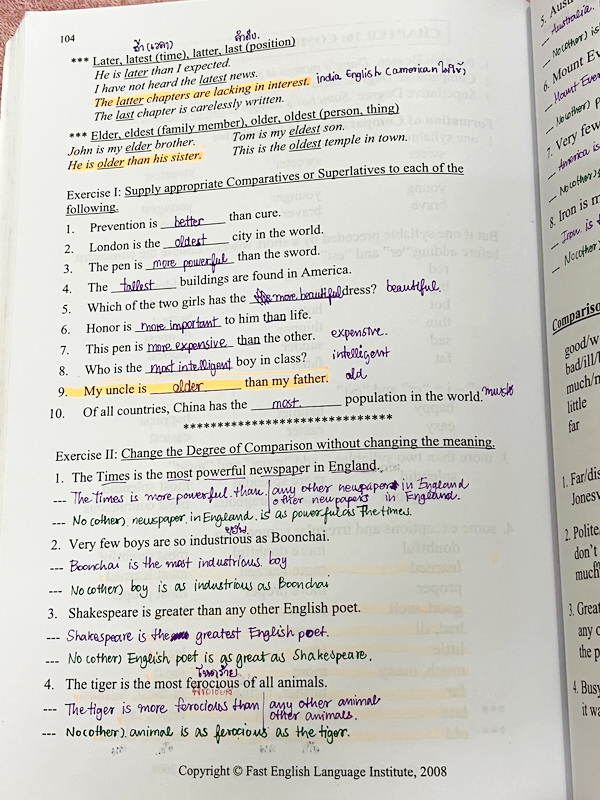 104
ช้า (เวลา) ลำดับ
*** Later, latest (time), latter, last (position)
He is later than I expected.
I have not heard the latest news.
The latter chapters are lacking in interest. India English (American ไม่ใช้)
The last chapter is carelessly written.
*** Elder, eldest (family member), older, oldest (person, thing)
John is my elder brother. Tom is my eldest son.
He is older than his sister. This is the oldest temple in town.
Exercise I: Supply appropriate Comparatives or Superlatives to each of the
following.
1. Prevention is better than cure.
2. London is the oldest city in the world.
3. The pen is more powerful than the sword.
4. The tallest buildings are found in America.
5. Which of the two girls has the more beautiful dress? beautiful.
6. Honor is more important to him than life.
7. This pen is more expensive than the other. expensive.
8. Who is the most intelligent boy in class? intelligent
9. My uncle is older than my father. old
10. Of all countries, China has the most population in the world.
******************************
Exercise II: Change the Degree of Comparison without changing the meaning.
1. The Times is the most powerful newspaper in England.
--- The Times is more powerful than any other newspaper in England
other newpapers in England.
--- No (other) newspaper in England is as powerful as The times.
ขยัน
2. Very few boys are so industrious as Boonchai.
--- Boonchai is the most industrious boy
--- No (other) boy is as industrious as Boonchai
3. Shakespeare is greater than any other English poet.
--- Shakespeare is the greatest English poet.
--- No (other) English poet is as great as Shakespeare.
4. The tiger is the most ferocious of all animals.
--- The tiger is more ferocious than any other animal
other animals.
--- No (other) animal is as ferocious as the tiger.
Copyright © Fast English Language Institute, 2008
5. Aust
Australia
No (other) is
6. Mount Ev
Mount Ever
No (other)
7. Very few
America is
No (other)
8. Iron is m
Iron is
No (other)
Comparison
good/w
bad/ill/
much/m
little
far
1. Far/dis
Jonesv
2. Polite
don't
much
3. Great
any o
the p
4. Busy
it wa